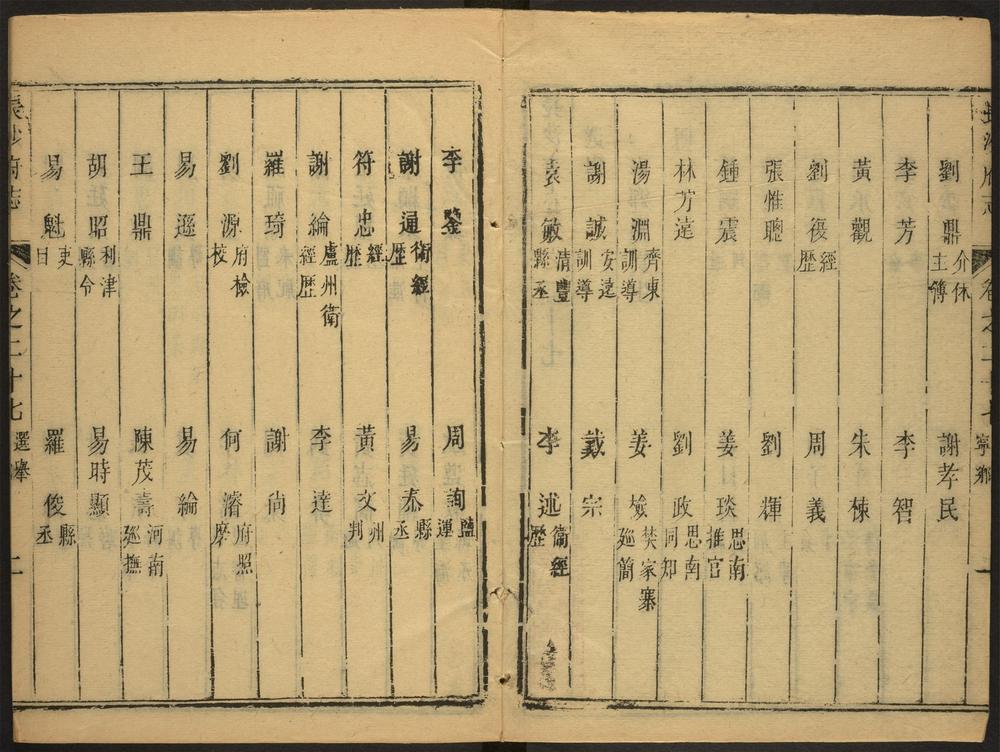 長沙府志 卷之二十七 寧鄉 一
劉鼎 介休主簿 謝孝民
李芳 李智
黃觀 朱棟
劉復 經歷 周義
張惟聰 劉輝
鍾震 姜琰 思南推官
林芳遠 劉政 思南同知
湯淵 齊東訓導 姜 樊家寨廵簡
謝誠 安遠訓導 戴宗
袁敏 清豐縣丞 李述 衞經歷
李鑒 周詢 鹽運
謝通 衛經歷 易泰 縣丞
符忠 經歷 黃文 州判
謝綸 盧州衛經歷 李達
羅琦 謝尙
劉源 府檢校 何濬 府照磨
易遜 易綸
王鼎 陳茂壽 河南廵撫
胡昭 利津縣令 易時顯
易魁 吏目 羅俊 縣丞
長沙府志 卷之二十七 選舉 二